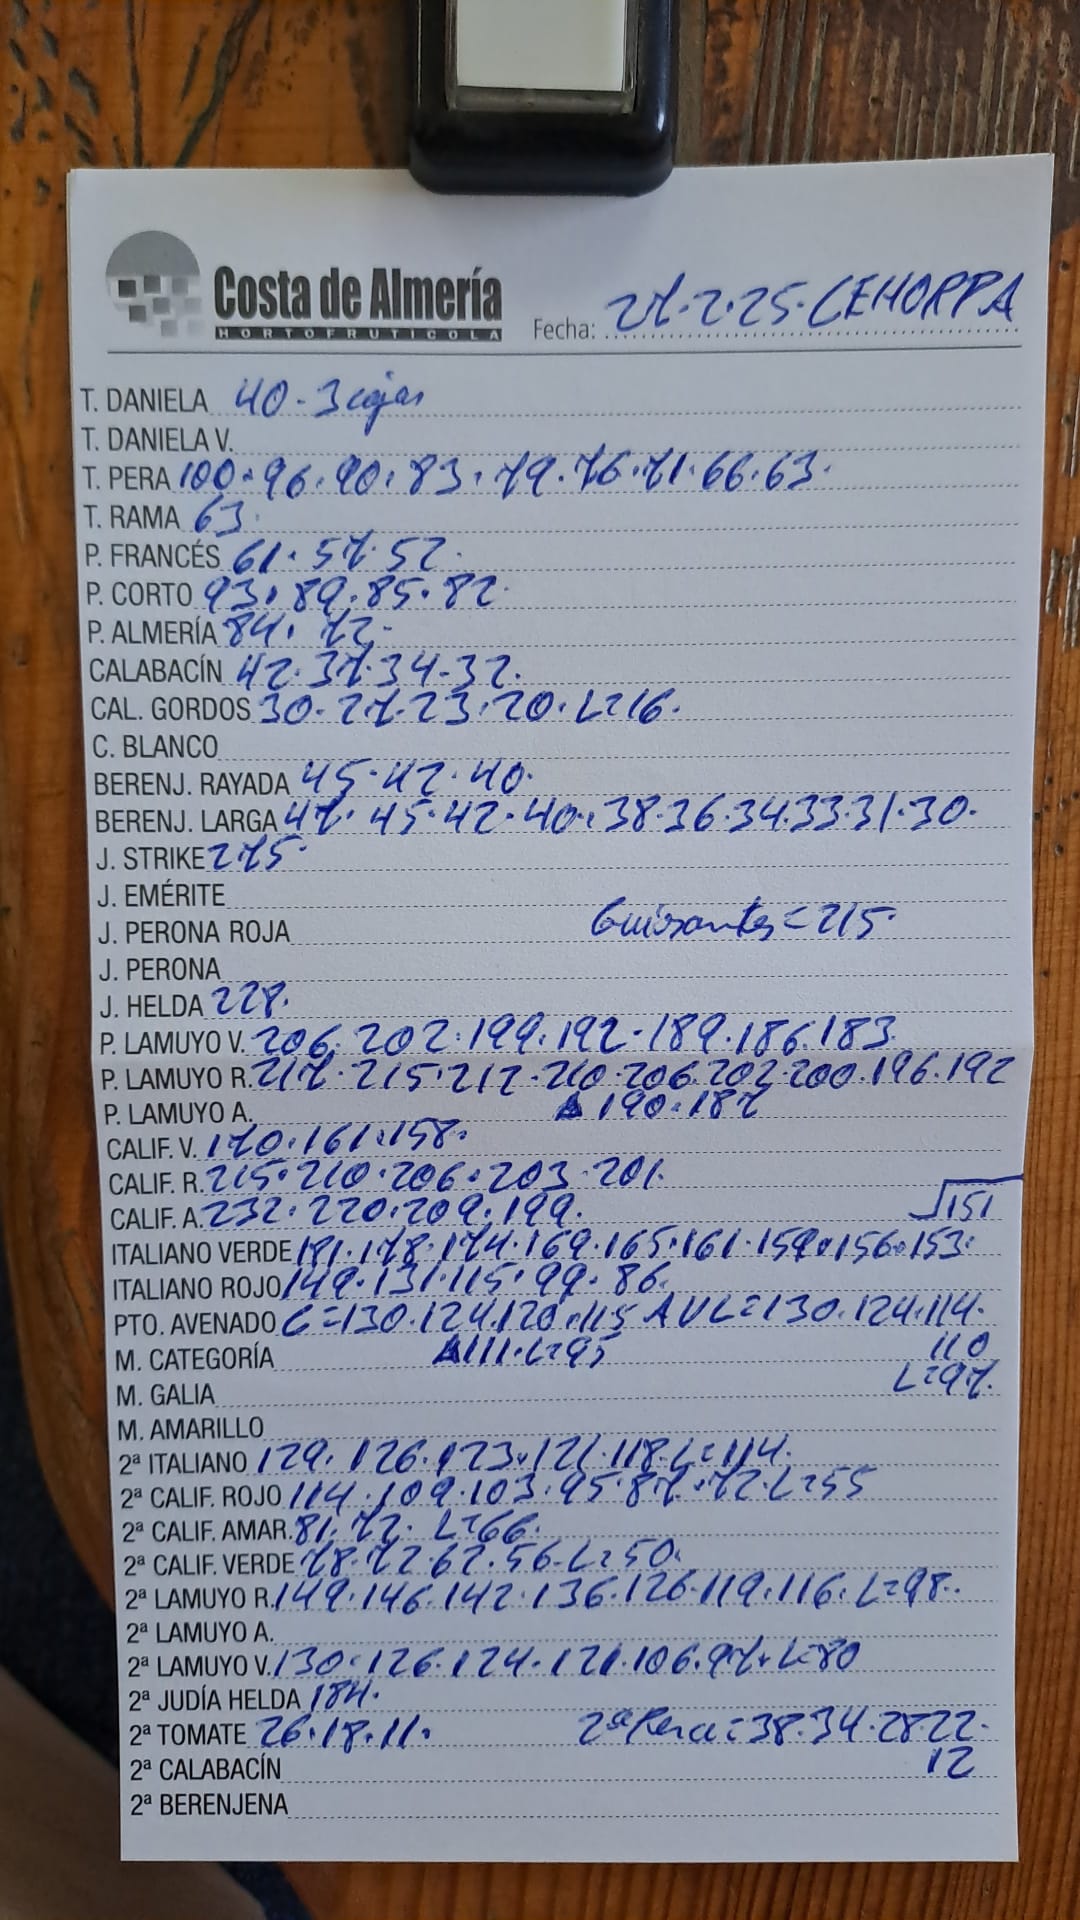 Costa de Almería
HORTOFRUTICOLA
Fecha: 27.2.25. CEHORPA
T. DANIELA 40 - 3 cajas
T. DANIELA V.
T. PERA 100.96.90.83.79.76.71.66.63.
T. RAMA 63.
P. FRANCÉS 61.57.52.
P. CORTO 93.89.85.82.
P. ALMERÍA 84.72.
CALABACÍN 42.37.34-32.
CAL. GORDOS 30.27.23.20.L=16.
C. BLANCO
BERENJ. RAYADA 45.42.40.
BERENJ. LARGA 47.45.42.40.38.36.34.33.31.30.
J. STRIKE 275.
J. EMÉRITE
Guisantes = 215.
J. PERONA ROJA
J. PERONA
J. HELDA 228.
P. LAMUYO V. 206.202.199.192.189.186.183.
P. LAMUYO R. 217.215.212.210.206.202.200.196.192
P. LAMUYO A. 190.187
CALIF. V. 170.161.158.
CALIF. R. 215.210.206.203.201.
CALIF. A. 232.220.209.199. 151
ITALIANO VERDE 181.178.174.169.165.161.159.156.153.
ITALIANO ROJO 149.131.115.99.86.
PTO. AVENADO C=130.124.120.115 AVL=130.124.114.
M. CATEGORÍA 111.L=95 110
M. GALIA L=97.
M. AMARILLO
2ª ITALIANO 129.126.123.121.118.L=114.
2ª CALIF. ROJO 114.109.103.95.87.72.L=55
2ª CALIF. AMAR. 81.72. L=66.
2ª CALIF. VERDE 78.72.62.56.L=50.
2ª LAMUYO R. 149.146.142.136.126.119.116.L=98.
2ª LAMUYO A.
2ª LAMUYO V. 130.126.124.121.106.97.L=80
2ª JUDÍA HELDA 184.
2ª TOMATE 26.18.11. 2ª Pera=38.34.28.22.
2ª CALABACÍN 12
2ª BERENJENA